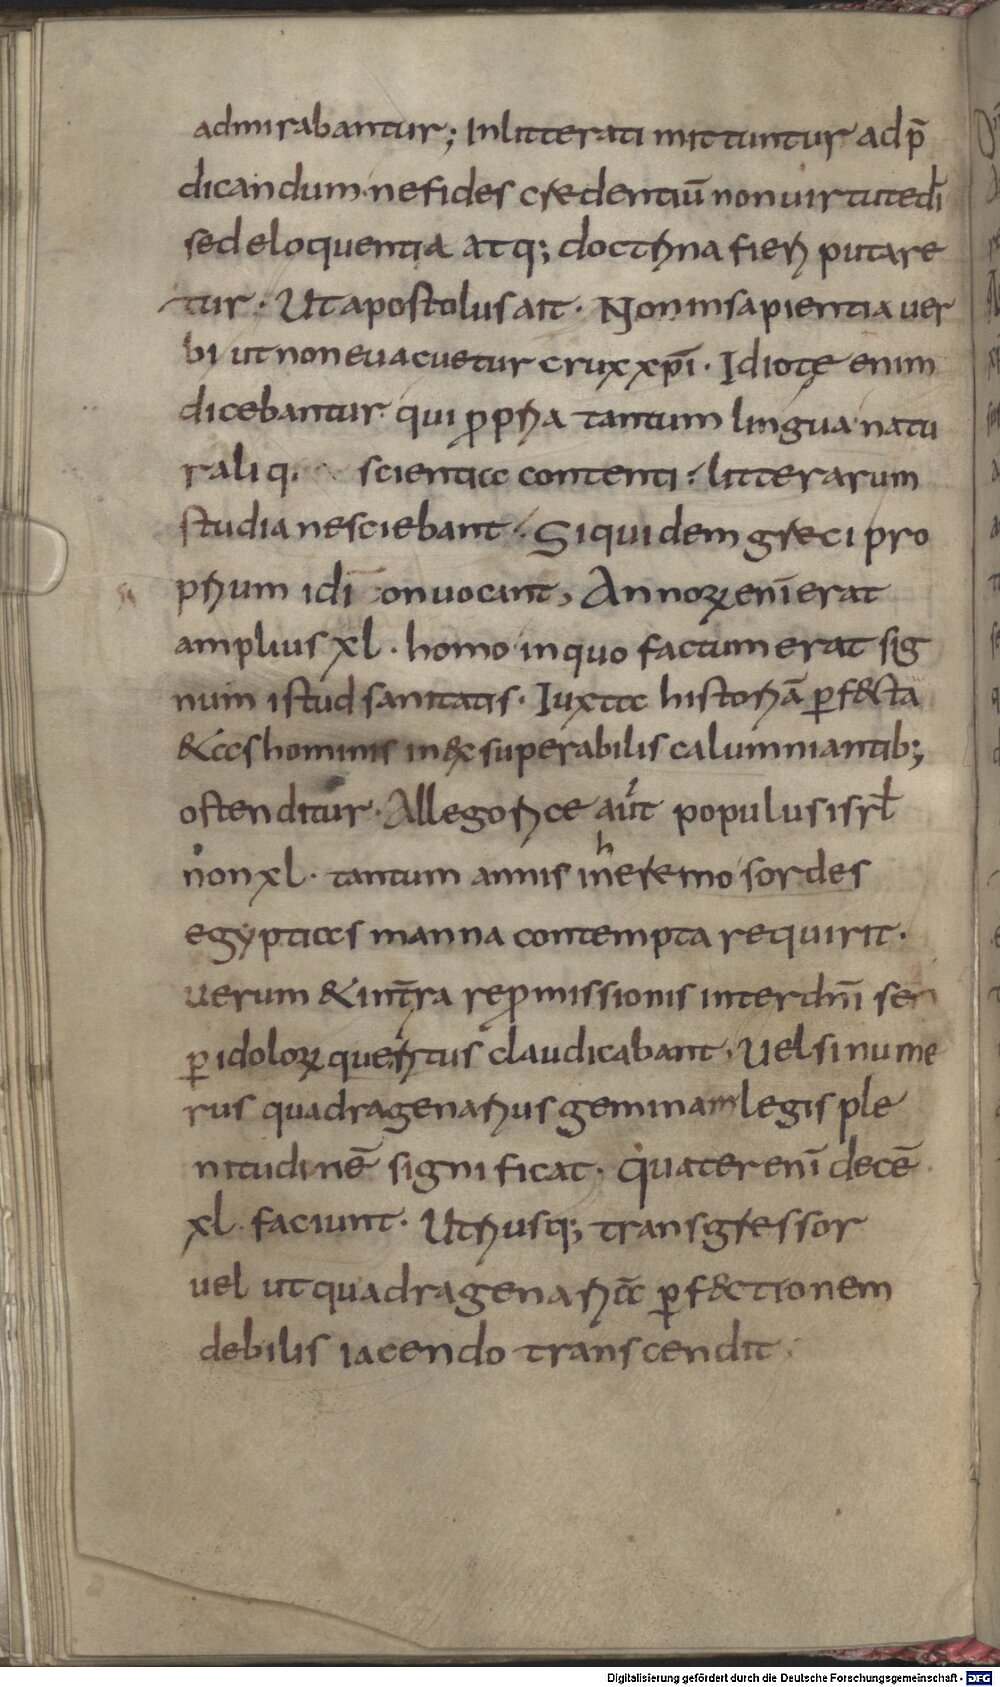 admirabantur; Inlitterati mittuntur adp̄
dicandum nefides credentiū nonuirtutedī
sedeloquentia atq; doctrina fieri putare
tur· Utapostolusait· Noninsapientiauer
bi utnoneuacuetur cruxxpī· Idiotę enim
dicebantur· qui ꝓpria tantum lingua natu
raliq. scientia contenti· litterarum
studianesciebant· Siquidem greci pro
prium idi onuocant, Annoꝝ enī erat
amplius xl· homo inquo factumerat sig
num istud sanitatis· Iuxta historiā ꝑf&cta
&as hominis in&x superabilis calumniantib;
ostenditur· Allegorice aūt populus isrł
non xl· tantum annis inheremo sordes
egyptias manna contempta requirit·
uerum & int̄ra reꝓmissionis interdnī ser
ꝑ idoloꝝ queritus claudicabant, Uelsinume
rus quadragenarius geminam legis ple
nitudinē significat· quater enī decē
xl faciunt· Utriusq; transgressor
uel utquadragenaria ꝑf&ctionem
debilis iacendo transcendit·
Digitalisierung gefördert durch die Deutsche Forschungsgemeinschaft - DFG